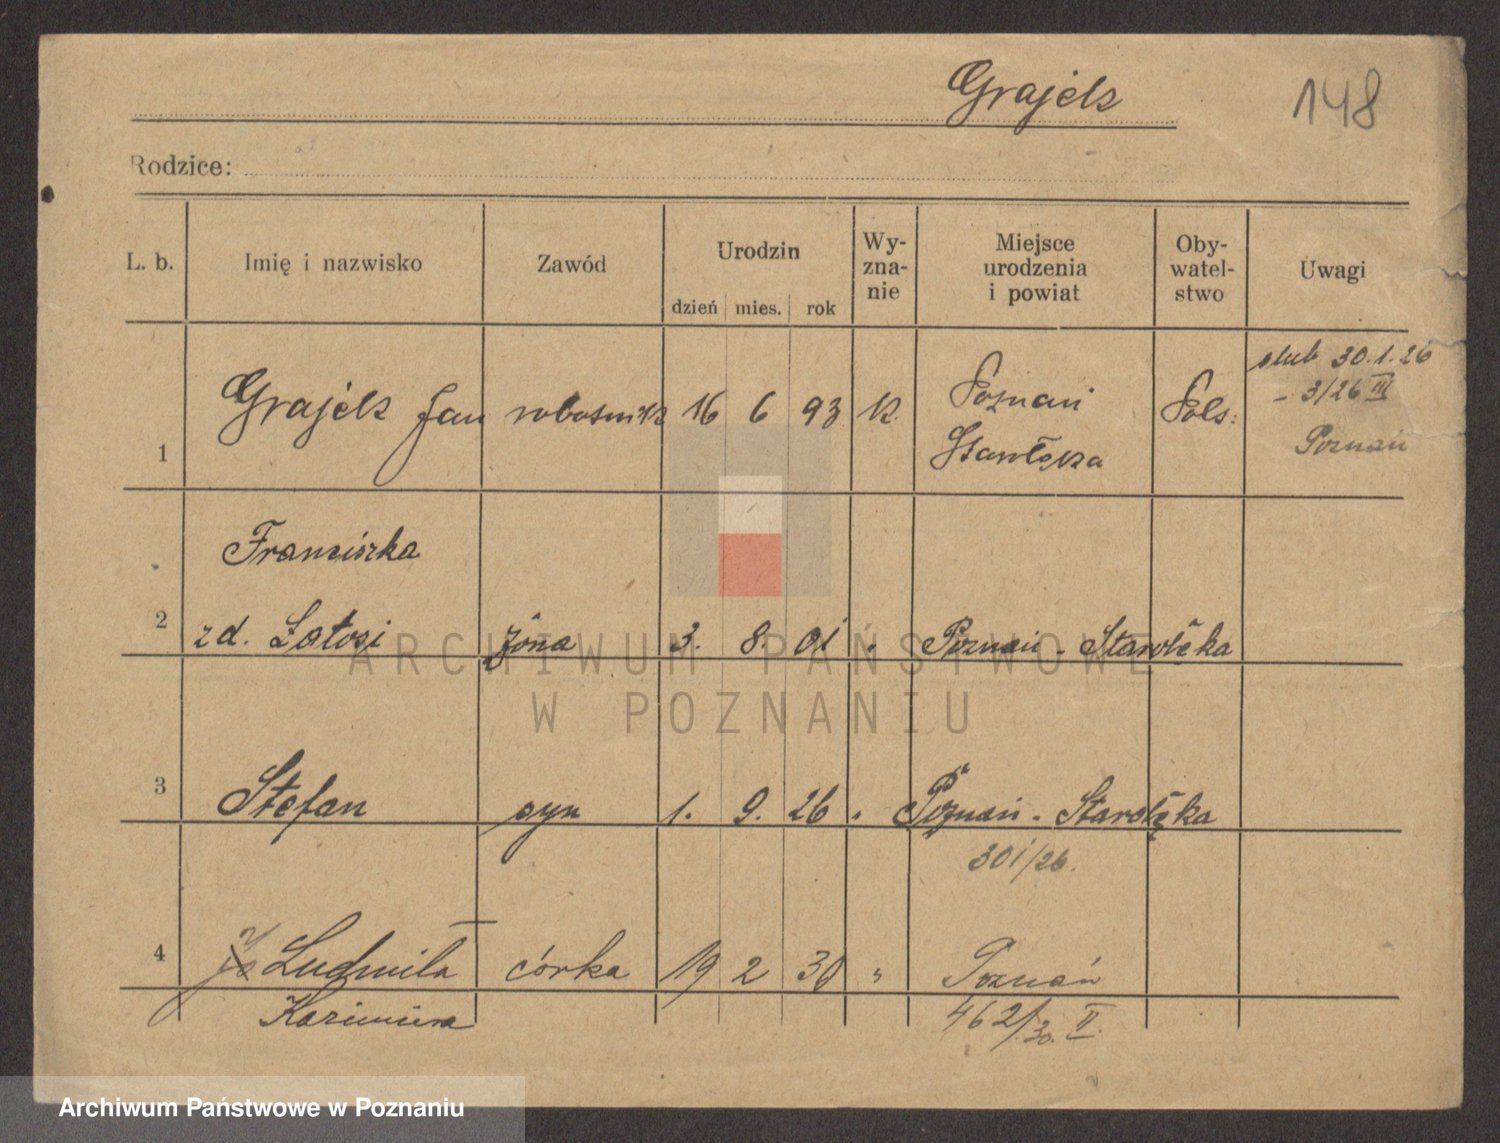 Grajek
148
Rodzice:
L. b.
Imię i nazwisko
Zawód
Urodzin
dzień mies. rok
Wy-
zna-
nie
Miejsce
urodzenia
i powiat
Oby-
watel-
stwo
Uwagi
1
Grajek Jan robotnik 16 6 93 k.
Poznań
Starołęka
Pols:
ślub 30.1.26
- 3/26 III
Poznań
2
Franciszka
zd. Latosi żona 3. 8. 01 " Poznań - Starołęka
3
Stefan syn 1. 9. 26 " Poznań - Starołęka
301/26.
4
Ludmiła córka 19 2 30 " Poznań
Kazimiera
462/30. II.
ARCHIWUM PAŃSTWOWE
W POZNANIU
Archiwum Państwowe w Poznaniu